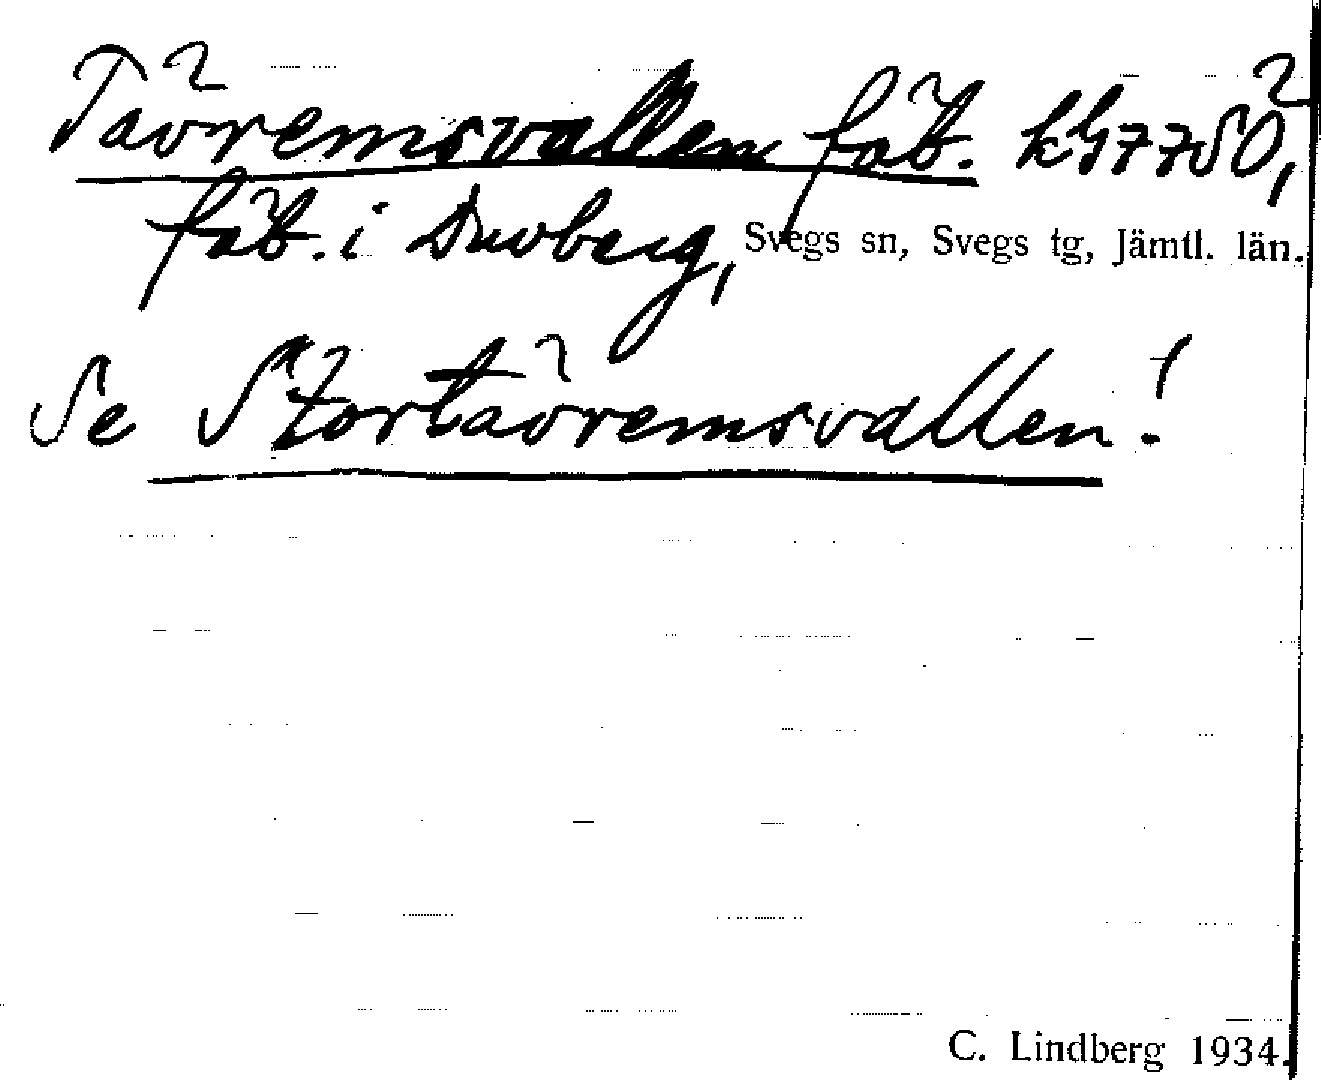 Tävremsvallen fäb.
fäb. i Duvberg, Svegs sn, Svegs tg, Jämtl. län.
Se Stortävremsvallen!
C. Lindberg 1934.